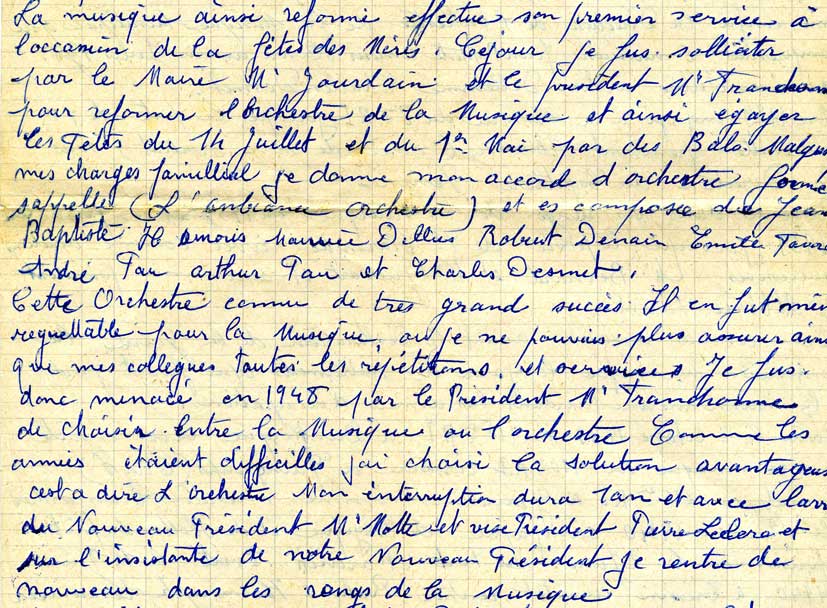 La musique ainsi reformé effectue son premier service à
l'occasion de la fêtes des Mères. Cejour je fus solliciter
par le Maire Mr Jourdain et le president Mr Franchomme
pour reformer l'Orchestre de la Musique et ainsi égayer
les Fêtes du 14 Juillet et du 1er Mai par des Bals. Malgré
mes charges familliale je donne mon accord d'orchestre formé
s'appelle (L'ambiance orchestre) et es composée de Jean
Baptiste Maurice Dellus Robert Denain Emile Favre
André Tau arthur Tau et Charles Desmet.
Cette Orchestre connu de tres grand succès Il en fut même
regrettable pour la Musique, ou je ne pouvais plus assurer ainsi
que mes collegues toutes les répétitions, et services Je fus
donc menacé en 1948 par le Président Mr Franchomme
de choisir Entre la Musique ou l'orchestre Comme les
années étaient difficilles j'ai choisi la solution avantageus
cest a dire L'orchestre Mon interruption dura 1an et avec l'arr
du Nouveau Président Mr Motte et vise Président Pierre Leclere et
sur l'insistante de notre Nouveau Président je rentre de
nouveau dans les rangs de la Musique